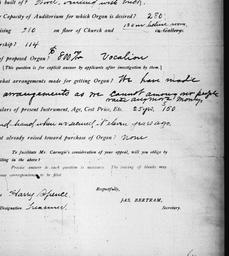 built of? Stone, veneered with brick.
Capacity of Auditorium for Organ is desired? 280.
210 on floor of Church and in Gallery.
114
of proposed Organ? $800 Vocalion
[This question is for explicit answer by applicants after investigation by them.]
what arrangements made for getting Organ? We have made
arrangements as we cannot among our people
raise anymore money,
of present Instrument, Age, Cost Price, Etc. 25 yrs, 150
hand when we secured it eleven years ago
already raised toward purchase of Organ? none
To facilitate Mr. Carnegie's consideration of your appeal, will you oblige by
filling in the above?
Precise answer to each question is necessary. The missing of blanks may
correspondence to be filed.
Respectfully,
Harry Spence
JAS. BERTRAM,
Designation Treasurer
Secretary.